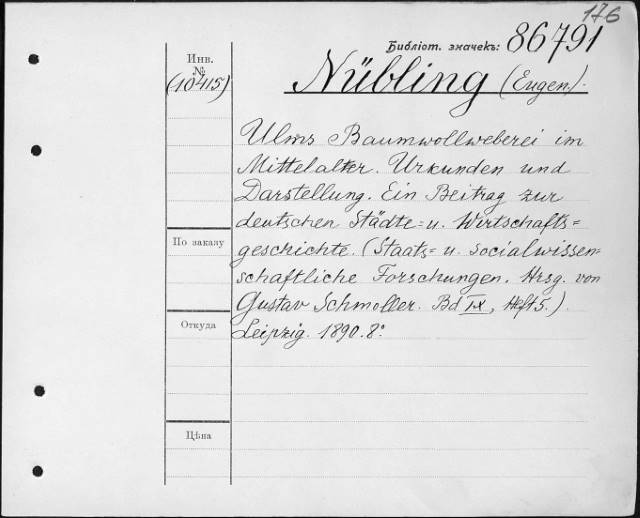 176
Библіот. значекъ: 86791
Инв.
№
(10415)
Nübling (Eugen).
Ulms Baumwollweberei im
Mittelalter. Urkunden und
Darstellung. Ein Beitrag zur
deutschen Städte= u. Wirtschafts=
geschichte. (Staats= u. socialwissen=
schaftliche Forschungen. Hrsg. von
Gustav Schmoller. Bd IX, Heft 5.)
Leipzig. 1890. 8°.
По заказу
Откуда
Цѣна